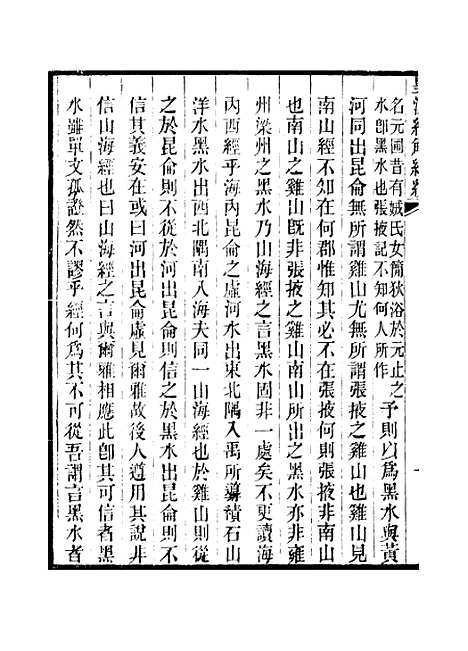 皇清經解續編
名元國昔有娀氏女簡狄浴於元止之
水卽黑水也張掖記不知何人所作
予則以爲黑水與黃
河同出昆侖無所謂雞山尤無所謂張掖之雞山也雞山見
南山經不知在何郡惟知其必不在張掖何則張掖非南山
也南山之雞山旣非張掖之雞山南山所出之黑水亦非雍
州梁州之黑水乃山海經之言黑水固非一處矣不更讀海
內西經乎海內昆侖之虛河水出東北隅入禹所導積石山
洋水黑水出西北隅南入海夫同一山海經也於雞山則從
之於昆侖則不從於河出昆侖則信之於黑水出昆侖則不
信其義安在或曰河出昆侖虛見爾雅故後人遵用其說非
信山海經也曰山海經之言與爾雅相應此卽其可信者黑
水雖單文孤證然不謬乎經何爲其不可從吾謂言黑水者